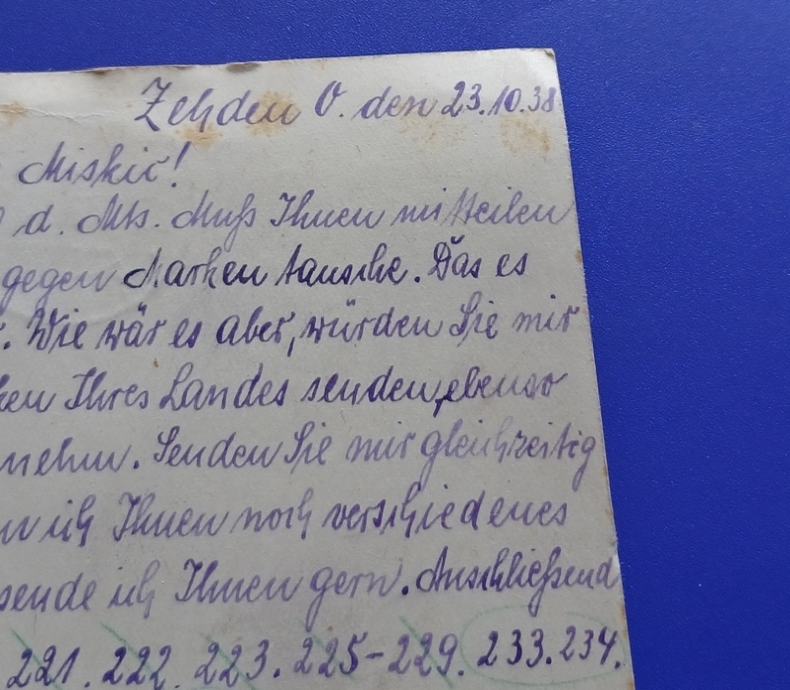 Zehden O. den 23.10.38
Miskic!
d. Mts. Muß Ihnen mitteilen
gegen Marken tausche. Das es
. Wie wär es aber, würden Sie mir
ken Ihres Landes senden, ebenso
nehm. Senden Sie mir gleichzeitig
n ich Ihnen noch verschiedenes
sende ich Ihnen gern. Anschließend
221. 222. 223. 225-229. 233. 234.